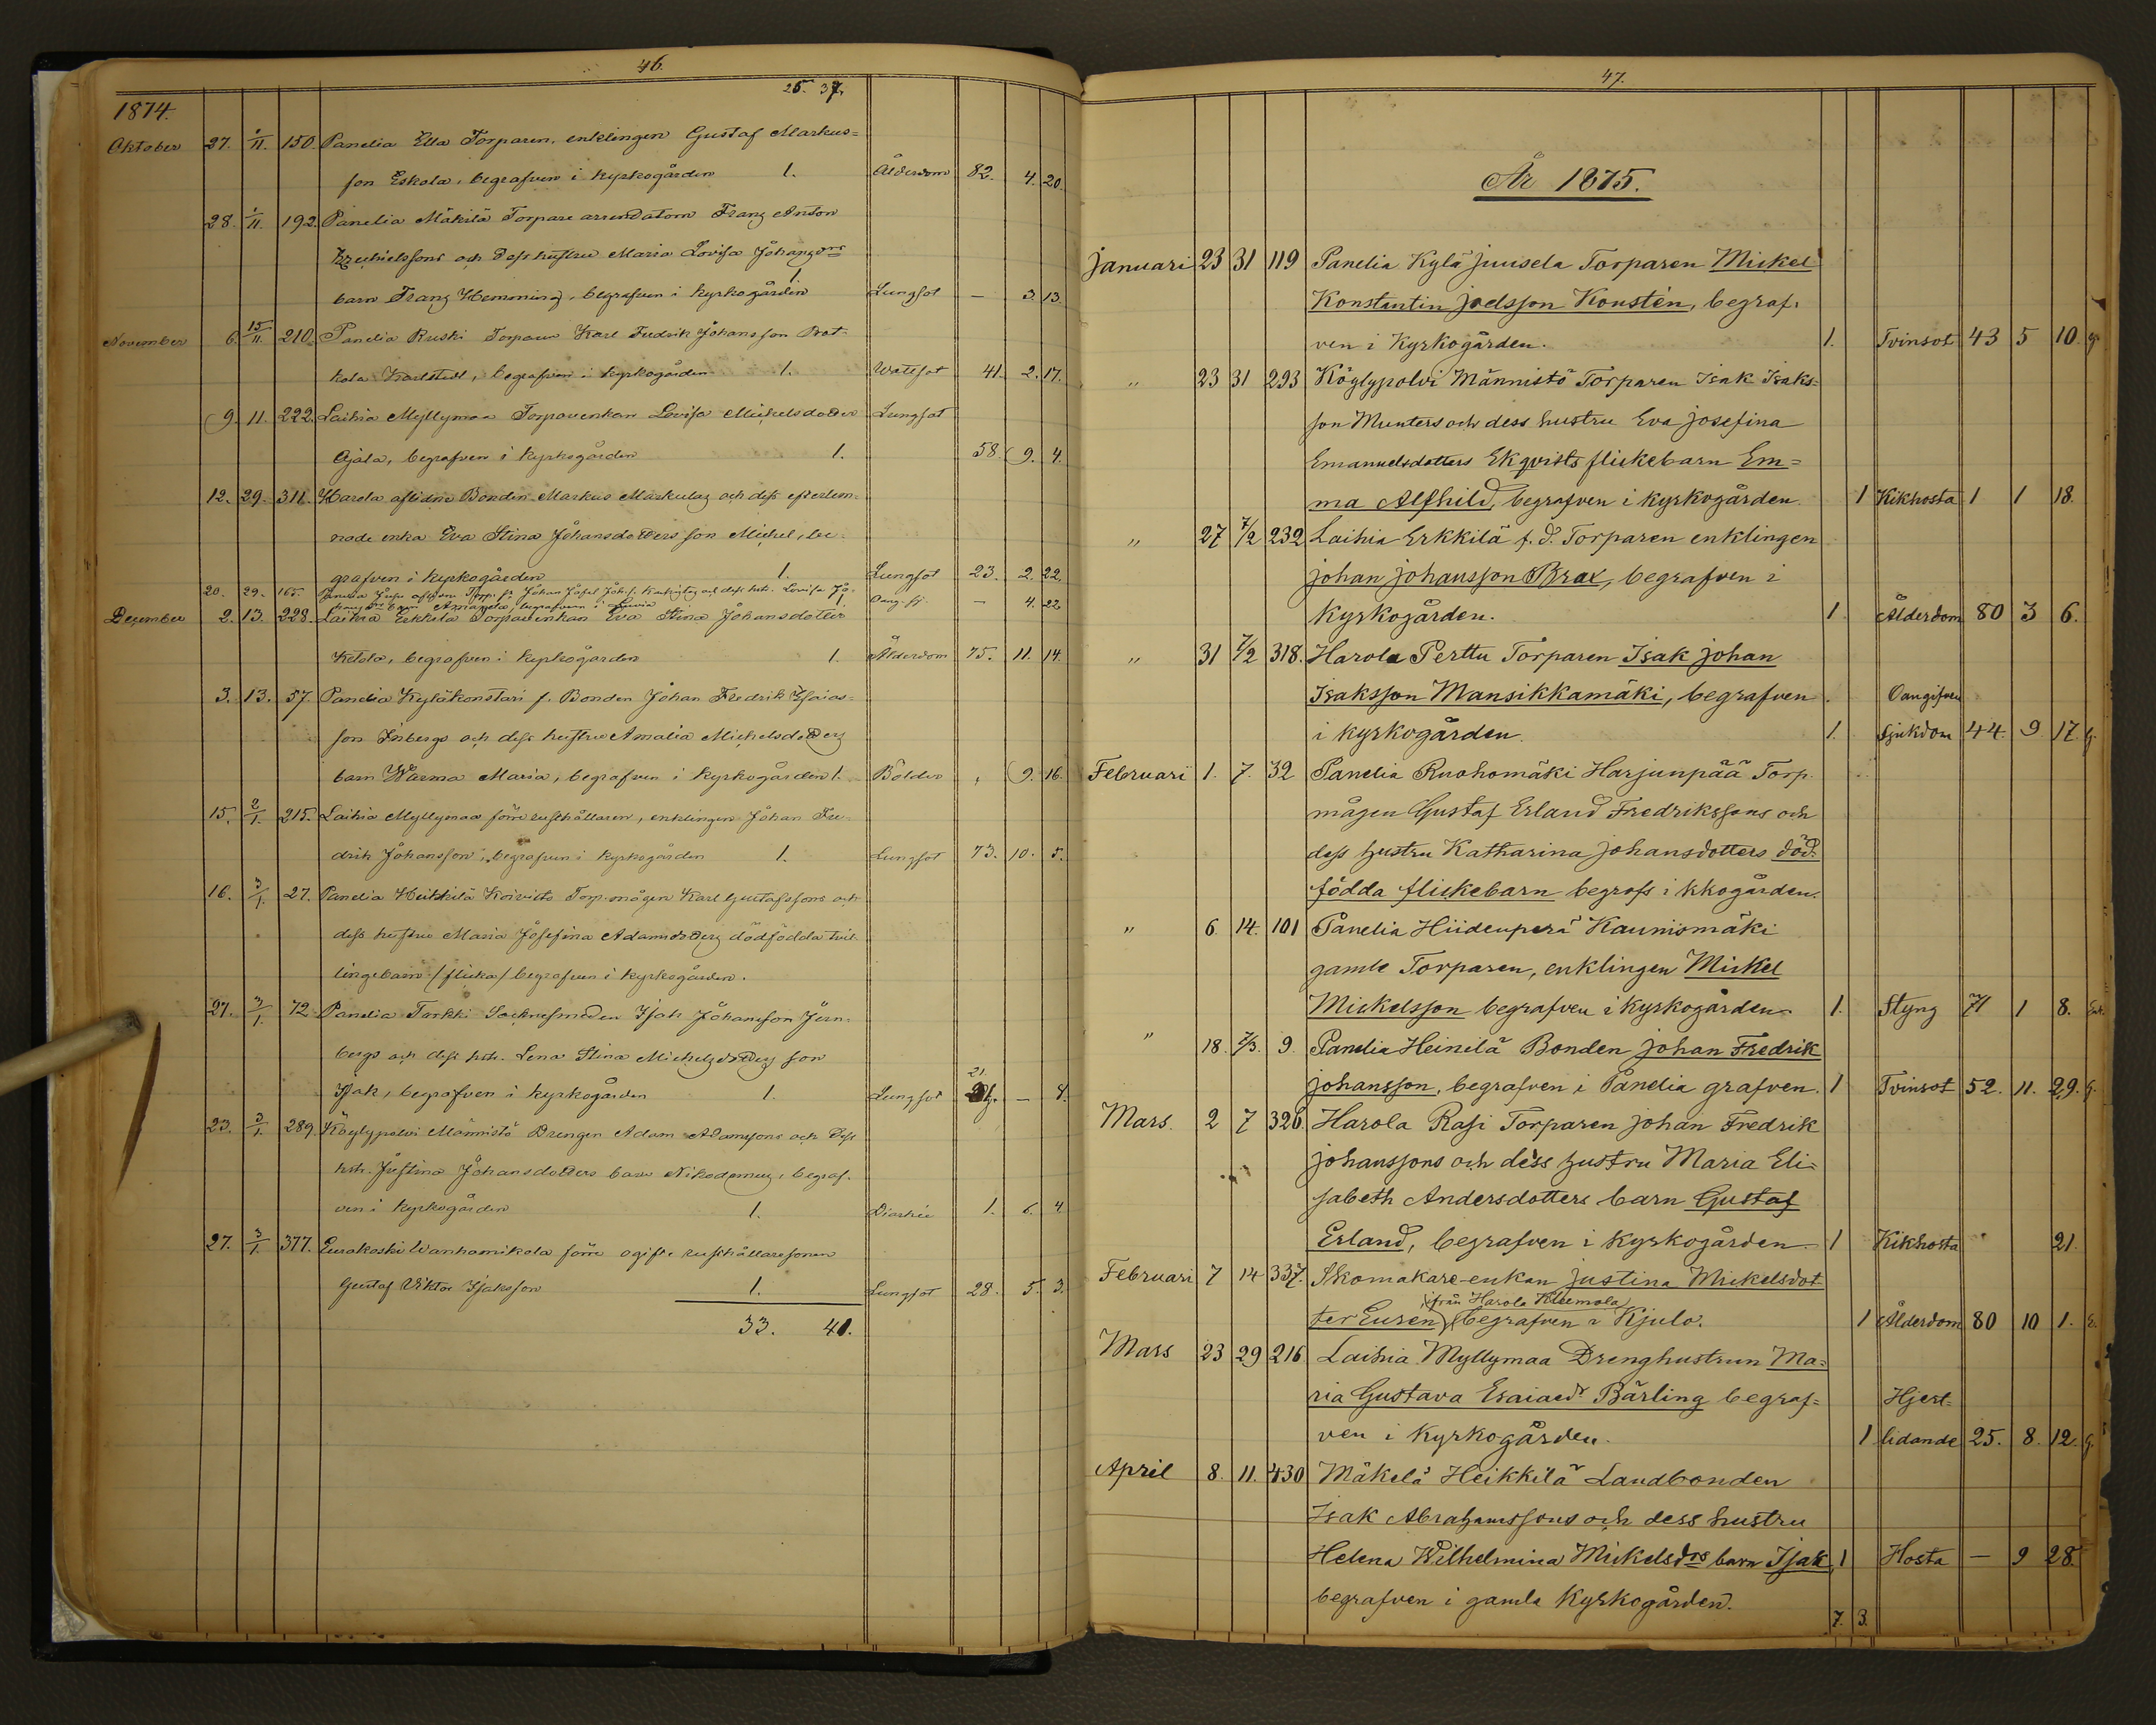 46.
25. 37.
1874.
Oktober 27. 1/11. 150. Panelia Ella Torparen, enklingen Gustaf Markus=
son Eskola, begrafven i kyrkogården 1. Ålderdom 82. 4. 20.
28. 1/11. 192. Panelia Mäkilä Torpare arrendatorn Franz Anton
och dess hustru Maria Lovisa Johansdrs
barn Franz Hemming, begrafven i kyrkogården 1 Lungsot — 3. 13.
November 6. 15/11. 210. Panelia Ruski Torparen Karl Fredrik Johansson
Karlstedt, begrafven i kyrkogården 1. Wattsot 41. 2. 17.
9. 11. 222. Laihia Myllymaa Torparenkan Lovisa Michelsdotter Lungsot
Ojala, begrafven i kyrkogården 1. 58. 9. 4.
12. 29. 311. Harola aflidne Bonden Markus Markulas och dess efterlem=
nade enka Eva Stina Johansdotters son Michel, be=
grafven i kyrkogården 1. Lungsot 23. 2. 22.
20. 29. 165. Panelia Johan Josef Joh. s. och dess hstr. Lovisa Jo=
begrafven i 1 — 4. 22
December 2. 13. 228. Laihia Erkkilä Torparenkan Eva Stina Johansdotter
Ketola, begrafven i kyrkogården 1. Ålderdom 75. 11. 14.
3. 13. 57. Panelia Kyläkonstari f. Bonden Johan Fredrik Esaias=
son Inbergs och dess hustru Amalia Michelsdotters
barn Warma Maria, begrafven i kyrkogården 1. Bölder , 9. 16.
15. 2/1. 215. Laihia Myllymaa förre rusthållaren, enklingen Johan Fre=
drik Johansson, begrafven i kyrkogården 1. Lungsot 73. 10. 5.
16. 3/1. 27. Panelia Heikkilä Koivisto Torp.mågen Karl Gustafssons och
dess hustru Maria Josefina Adamsdotters dödfödda tvil=
lingebarn /flicka/ begrafven i kyrkogården.
27. 3/1. 72. Panelia Tarkki Socknesmeden Isak Johansson Jern=
bergs och dess hstr. Lena Stina Michelsdotters son
Isak, begrafven i kyrkogården 1. Lungsot 21 — 8.
23. 3/1. 289. Köylypolvi Männistö Drengen Adam Adamssons och dess
hstr. Justina Johansdotters barn Nikodemus, begraf=
ven i kyrkogården 1. Diarhée 1. 6. 4
27. 3/1. 377. Eurakoski Wanhamikola förre ogifte rusthållaresonen
Gustaf Viktor Isaksson 1. Lungsot 28. 5. 3.
33. 41.
47.
År 1875.
Januari 23 31 119 Panelia Kylä Juusela Torparen Mickel
Konstantin Joelsson Konstén, begraf=
ven i Kyrkogården. 1. Tvinsot 43 5 10. g.
„ 23 31 293 Köylypolvi Männistö Torparen Isak Isaks=
son Munters och dess hustru Eva Josefina
Emanuelsdotters Ekqvists flickebarn Em=
ma Alfhild, begrafven i kyrkogården. 1 Kikhosta 1 1 18.
„ 27 7/2 232 Laihia Erkkilä f. d. Torparen enklingen
Johan Johansson Brax, begrafven i
Kyrkogården. 1 Ålderdom 80 3 6.
„ 31 7/2 318. Harola Perttu Torparen Isak Johan
Isaksson Mansikkamäki, begrafven Oangifven
i kyrkogården. 1. Sjukdom 44. 9 17. g.
Februari 1. 7. 32 Panelia Ruohomäki Harjunpää Torp.
mågen Gustaf Erland Fredrikssons och
dess hustru Katharina Johansdotters död=
födda flickebarn begrafs i kkogården.
„ 6. 14. 101 Panelia Hiidenperä Kaunismäki
gamle Torparen, enklingen Mickel
Mickelsson begrafven i kyrkogården. 1. Styng 71 1 8. Enk.
„ 18. 7/3. 9. Panelia Heinilä Bonden Johan Fredrik
Johansson, begrafven i Panelia grafven. 1 Tvinsot 52. 11. 29. g.
Mars. 2 7 326. Harola Rasi Torparen Johan Fredrik
Johanssons och dess hustru Maria Eli=
sabeth Andersdotters barn Gustaf
Erland, begrafven i kyrkogården. 1 Kikhosta 21.
Februari 7 14 337. Skomakare-enkan Justina Mickelsdot
från Harola Kleemola
ter Eusen, begrafven i Kjulo. 1 Ålderdom 80 10 1. E.
Mars 23 29 216 Laihia Myllymaa Drenghustrun Ma=
ria Gustava Esaiaedr Bärling begraf= Hjert=
ven i kyrkogården. 1 lidande 25. 8. 12. g.
April 8. 11. 430 Mäkelä Heikkilä Landbonden
Isak Abrahamssons och dess hustru
Helena Wilhelmina Mickelsdrs barn Isak, 1 Hosta — 9 28.
begrafven i gamla Kyrkogården.
7. 3.